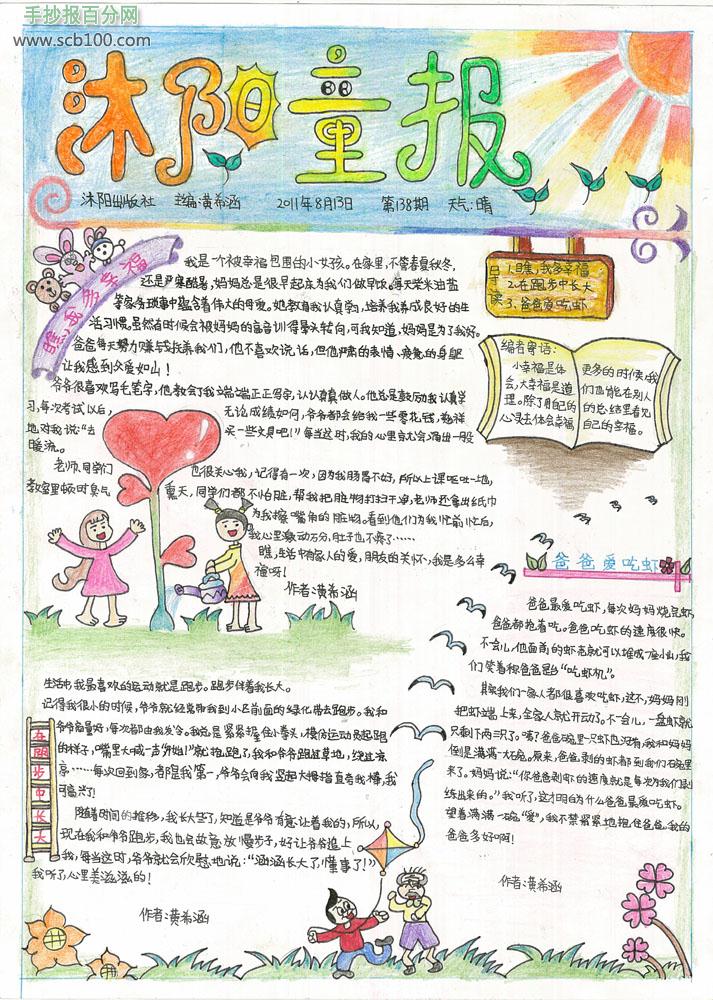 手抄报百分网
www.scb100.com
沐阳童报
沐阳出版社 主编:黄希涵 2011年8月13日 第138期 天气:晴
瞧,我多幸福
我是一个被幸福包围的小女孩。在家里,不管春夏秋冬,
还是严寒酷暑,妈妈总是很早起床为我们做早饭。每天柴米油盐
等家务琐事中蕴含着伟大的母爱。她教育我认真学习,培养我养成良好的生
活习惯。虽然有时候会被妈妈的高音训得晕头转向,可我知道,妈妈是为了我好。
爸爸每天努力赚钱抚养我们,他不喜欢说话,但他严肃的表情、疲惫的身躯
让我感到父爱如山!
爷爷很喜欢写毛笔字,他教会了我端端正正写字,认认真真做人。他总是鼓励我认真学
习,每次考试以后,无论成绩如何,爷爷都会给我一些零花钱,慈祥
地对我说:“去买一些文具吧!”每当这时,我的心里总会涌出一股
暖流。
老师、同学们也很关心我,记得有一次,因为我肠胃不好,所以上课呕吐一地,
教室里顿时臭气熏天,同学们都不怕脏,帮我把脏物打扫干净,老师还拿出纸巾
为我擦嘴角的脏物。看到他们为我忙前忙后,
我心里激动万分,肚子也不疼了……
瞧,生活中有家人的爱,朋友的关怀,我是多么幸
福呀!
作者:黄希涵
导读
1.瞧,我多幸福
2.在跑步中长大
3.爸爸爱吃虾
编者寄语:
小幸福是体
会,大幸福是道
理。除了用自己的
心灵去体会幸福
更多的时候,我
们也能在别人
的总结里看见
自己的幸福。
爸爸爱吃虾
爸爸最爱吃虾,每次妈妈烧完虾,
爸爸都抱着吃。爸爸吃虾的速度很快。
不一会儿,他面前的虾壳就可以堆成一座小山,我
们笑着称爸爸是台“吃虾机”。
其实我们一家人都很喜欢吃虾,这不,妈妈刚
把虾端上来,全家人就开动了。不一会儿,一盘虾就
只剩下两三只了。咦?爸爸碗里一只虾也没有,我和妈妈
倒是满满一大碗。原来,爸爸剥的虾都到我们碗里
来了。妈妈说:“你爸爸剥虾的速度就是每次为我们剥
练出来的。”我听了,这才明白为什么爸爸最爱吃虾。
望着满满一碗“爱”,我不禁紧紧地抱住爸爸。我的
爸爸多好啊!
作者:黄希涵
在跑步中长大
生活中,我最喜欢的运动就是跑步。跑步伴着我长大。
记得我很小的时候,爷爷就经常带我到小区前面的绿化带去跑步。我和
爷爷商量好,每次都由我发令。我总是紧紧握住小拳头,模仿运动员起跑
的样子,嘴里大喊一声“开始!”就抢跑了,我和爷爷跑过草地,绕过凉
亭……每次回到家,都是我第一,爷爷会向我竖起大拇指直夸我棒,我
可高兴了!
随着时间的推移,我长大些了,知道是爷爷有意让着我的,所以,
现在我和爷爷跑步,我也会故意放慢步子,好让爷爷追上
我,每当这时,爷爷就会欣慰地说:“涵涵长大了,懂事了!”
我听了心里美滋滋的!
作者:黄希涵